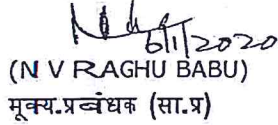 6/1/2020
(N V RAGHU BABU)
मूक्य.प्रबंधक (सा.प्र)